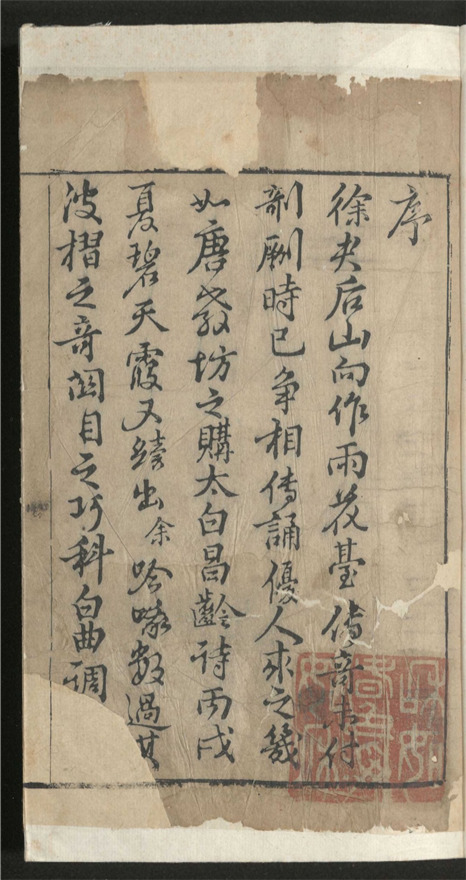 序
徐丈后山向作雨花臺傳奇未付
剞劂時已争相傳誦優人求之幾
如唐教坊之購太白昌齡詩丙戌
夏碧天霞又續出余吟咏數過其
波摺之奇関目之巧科白曲調